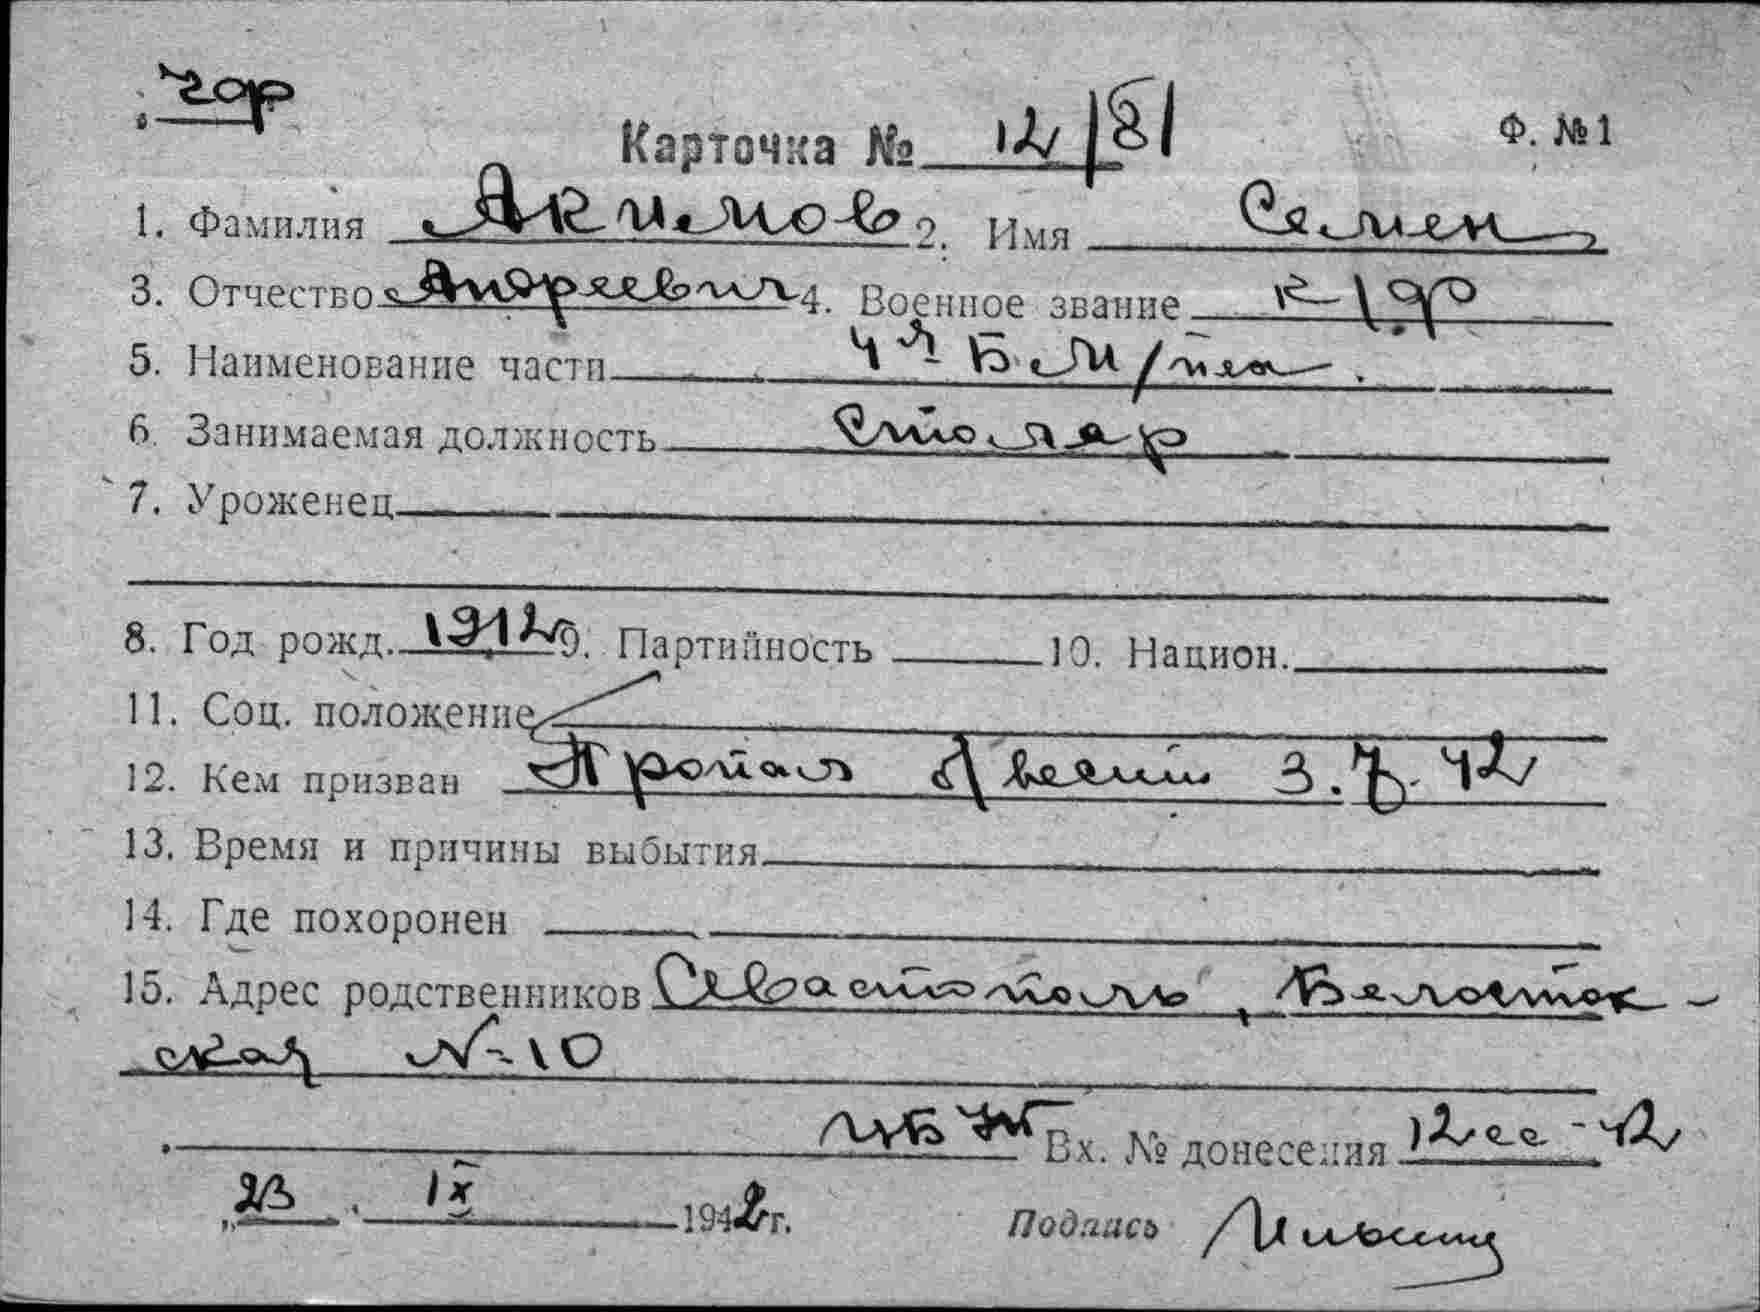 чар
Карточка № 12/81 Ф. №1
1. Фамилия Акимов 2. Имя Семен
3. Отчество Андреевич 4. Военное звание к/др
5. Наименование части
6. Занимаемая должность Столяр
7. Уроженец
8. Год рожд. 1912 9. Партийность 10. Национ.
11. Соц. положение
12. Кем призван Пропал б/вести 3.7.42
13. Время и причины выбытия
14. Где похоронен
15. Адрес родственников Севастополь, Белосток-
ская №-10
Вх. № донесения 12сс-42
„23 . IX 1942 г. Подпись